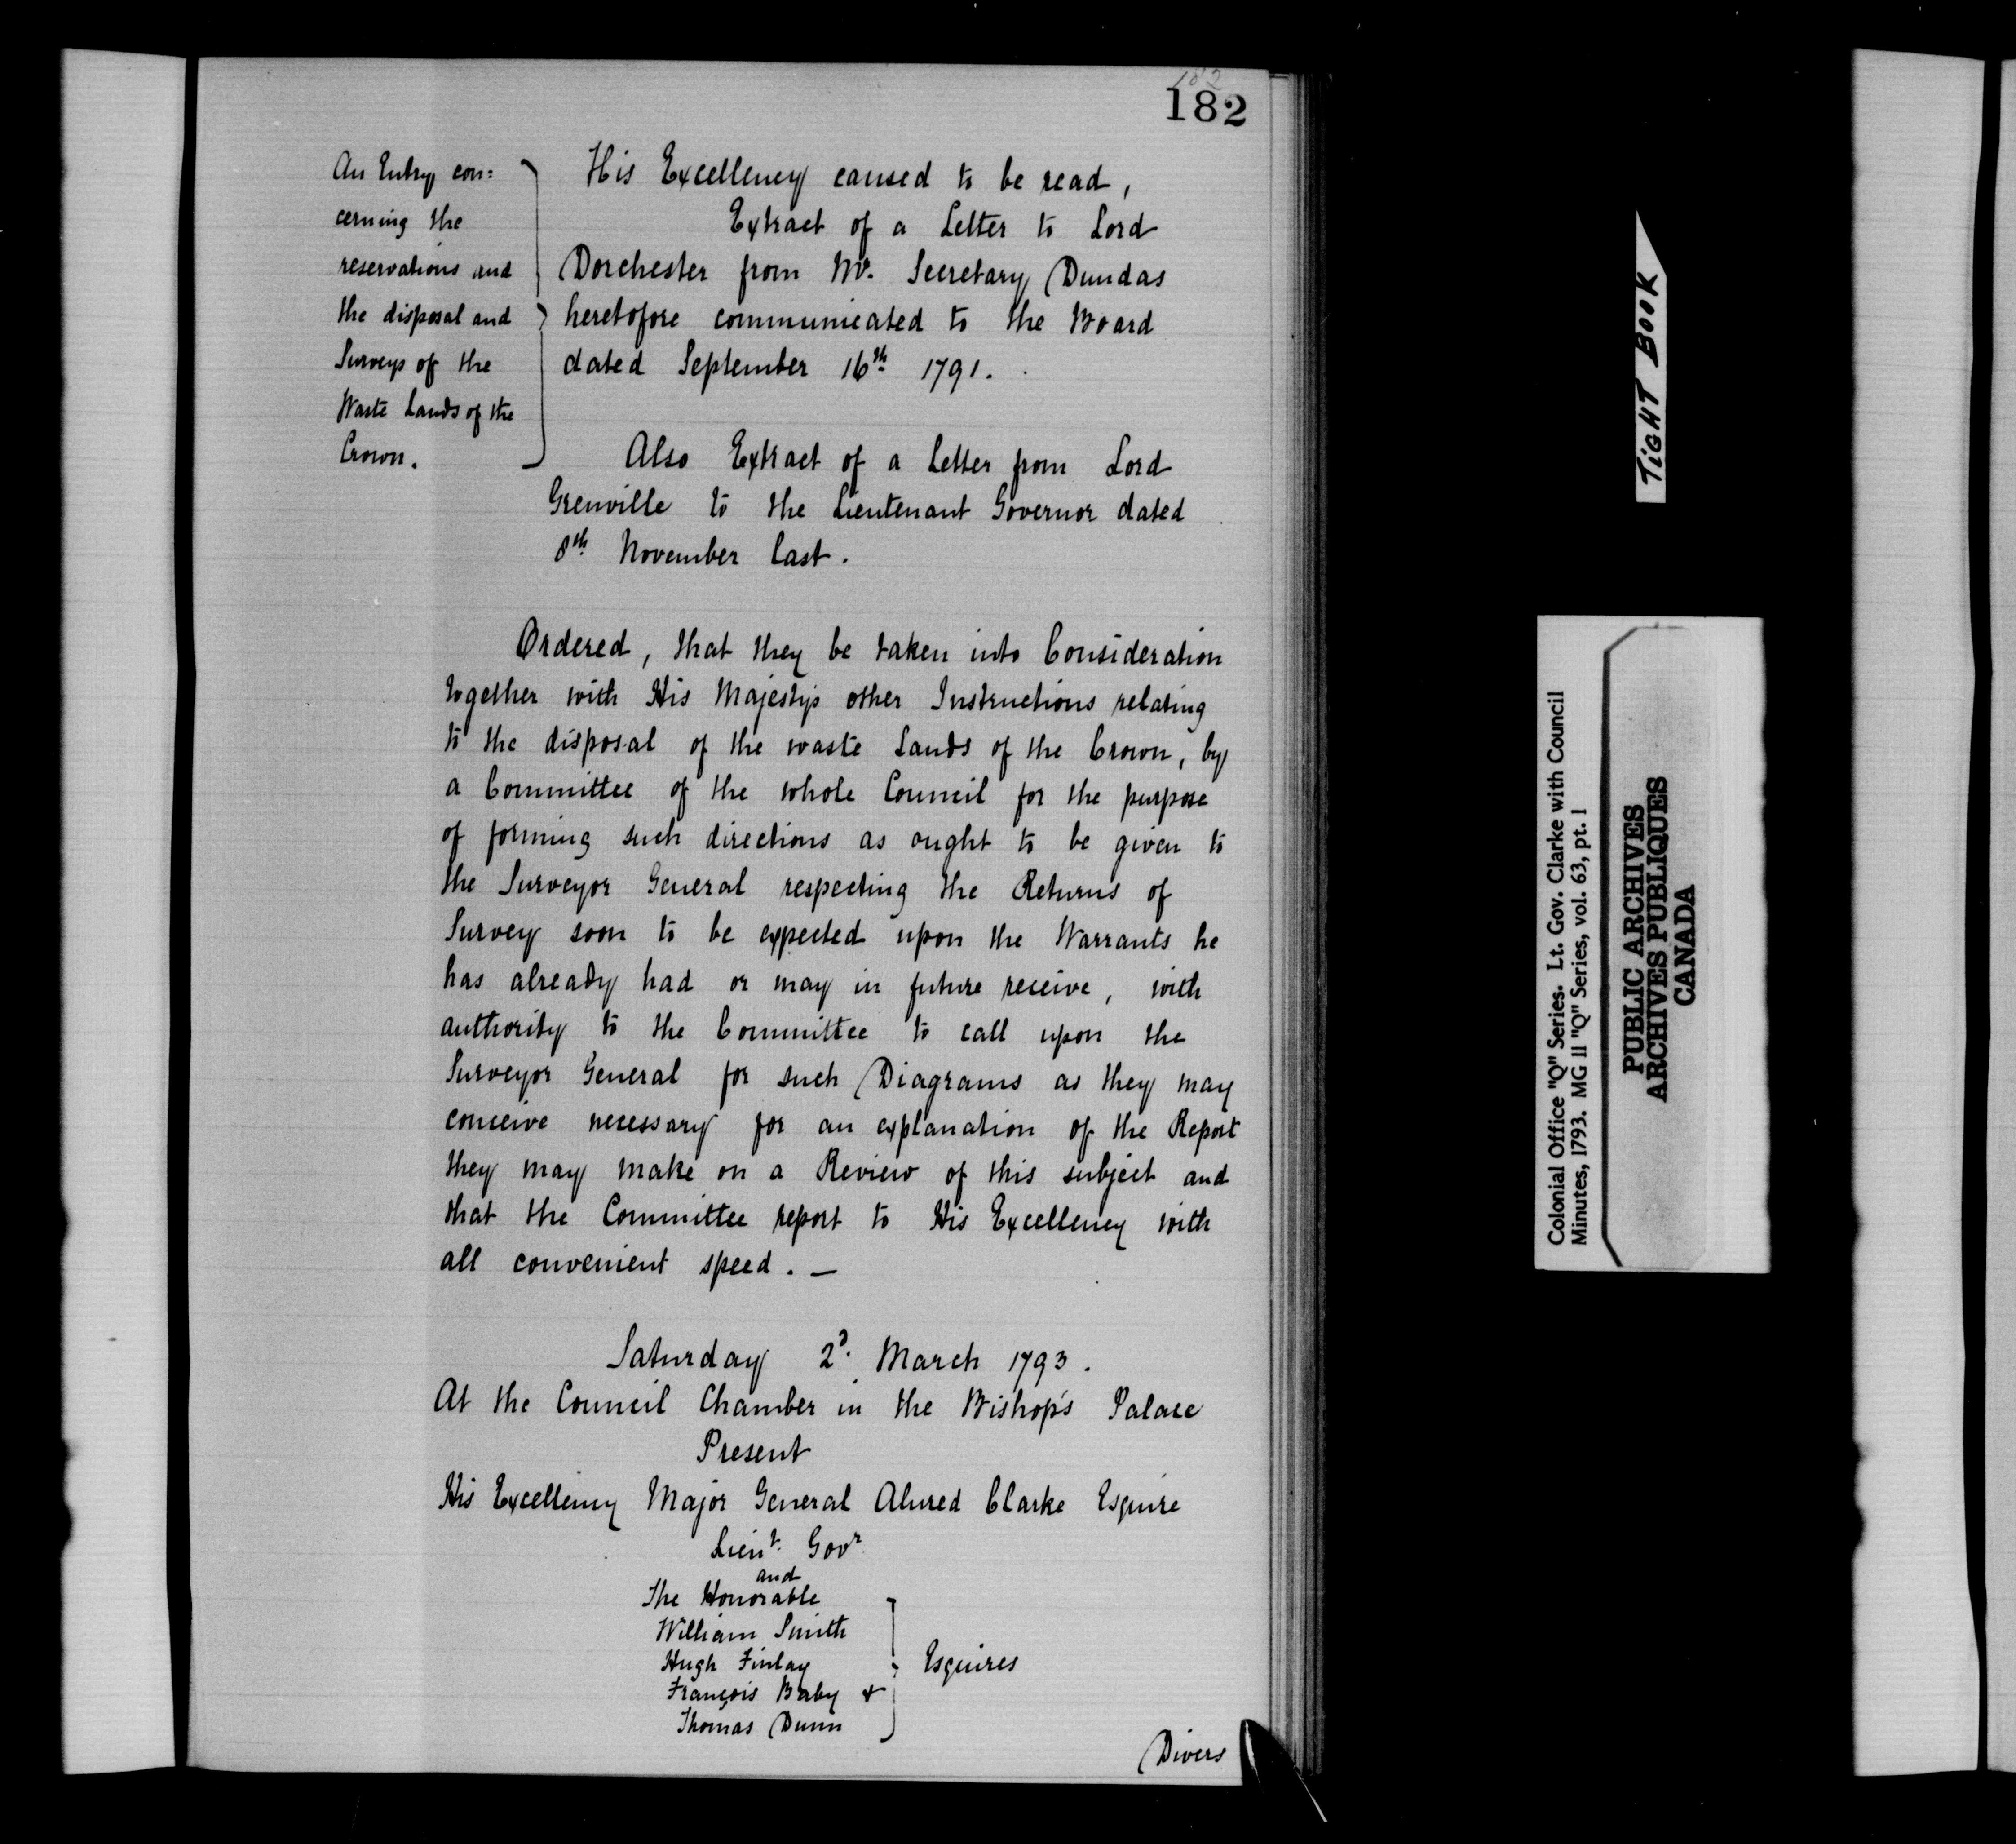 182
182
An Entry con=
cerning the
reservations and
the disposal and
Surveys of the
Waste Lands of the
Crown.
His Excellency caused to be read,
Extract of a Letter to Lord
Dorchester from Mr. Secretary Dundas
heretofore communicated to the Board
dated September 16th 1791.
Also Extract of a Letter from Lord
Grenville to the Lieutenant Governor dated
8th November last.
Ordered, that they be taken into Consideration
together with His Majesty's other Instructions relating
to the disposal of the waste Lands of the Crown, by
a Committee of the whole Council for the purpose
of forming such directions as ought to be given to
the Surveyor General respecting the Returns of
Survey soon to be expected upon the Warrants he
has already had or may in future receive, with
authority to the Committee to call upon the
Surveyor General for such Diagrams as they may
conceive necessary for an explanation of the Report
they may make on a Review of this subject and
that the Committee report to His Excellency with
all convenient speed. —
Saturday 2d. March 1793.
At the Council Chamber in the Bishop's Palace
Present
His Excellency Major General Alured Clarke Esquire
Lieut. Govr
and
The Honorable
William Smith
Hugh Finlay
François Baby &
Thomas Dunn
Esquires
Divers
TIGHT BOOK
Colonial Office "Q" Series. Lt. Gov. Clarke with Council
Minutes, 1793. MG 11 "Q" Series, vol. 63, pt. 1
PUBLIC ARCHIVES
ARCHIVES PUBLIQUES
CANADA